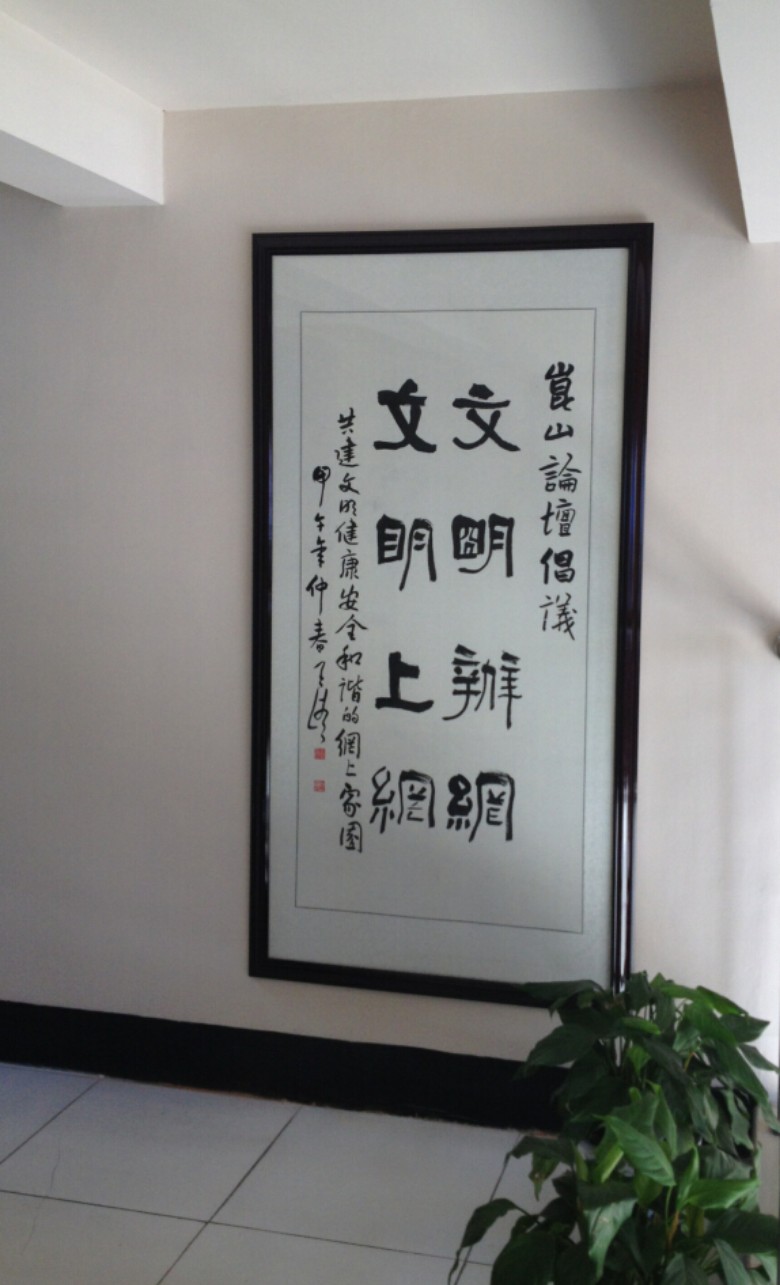 崑山論壇倡議
文明辦網
文明上網
共建文明健康安全和谐的網上家園
甲午年仲春